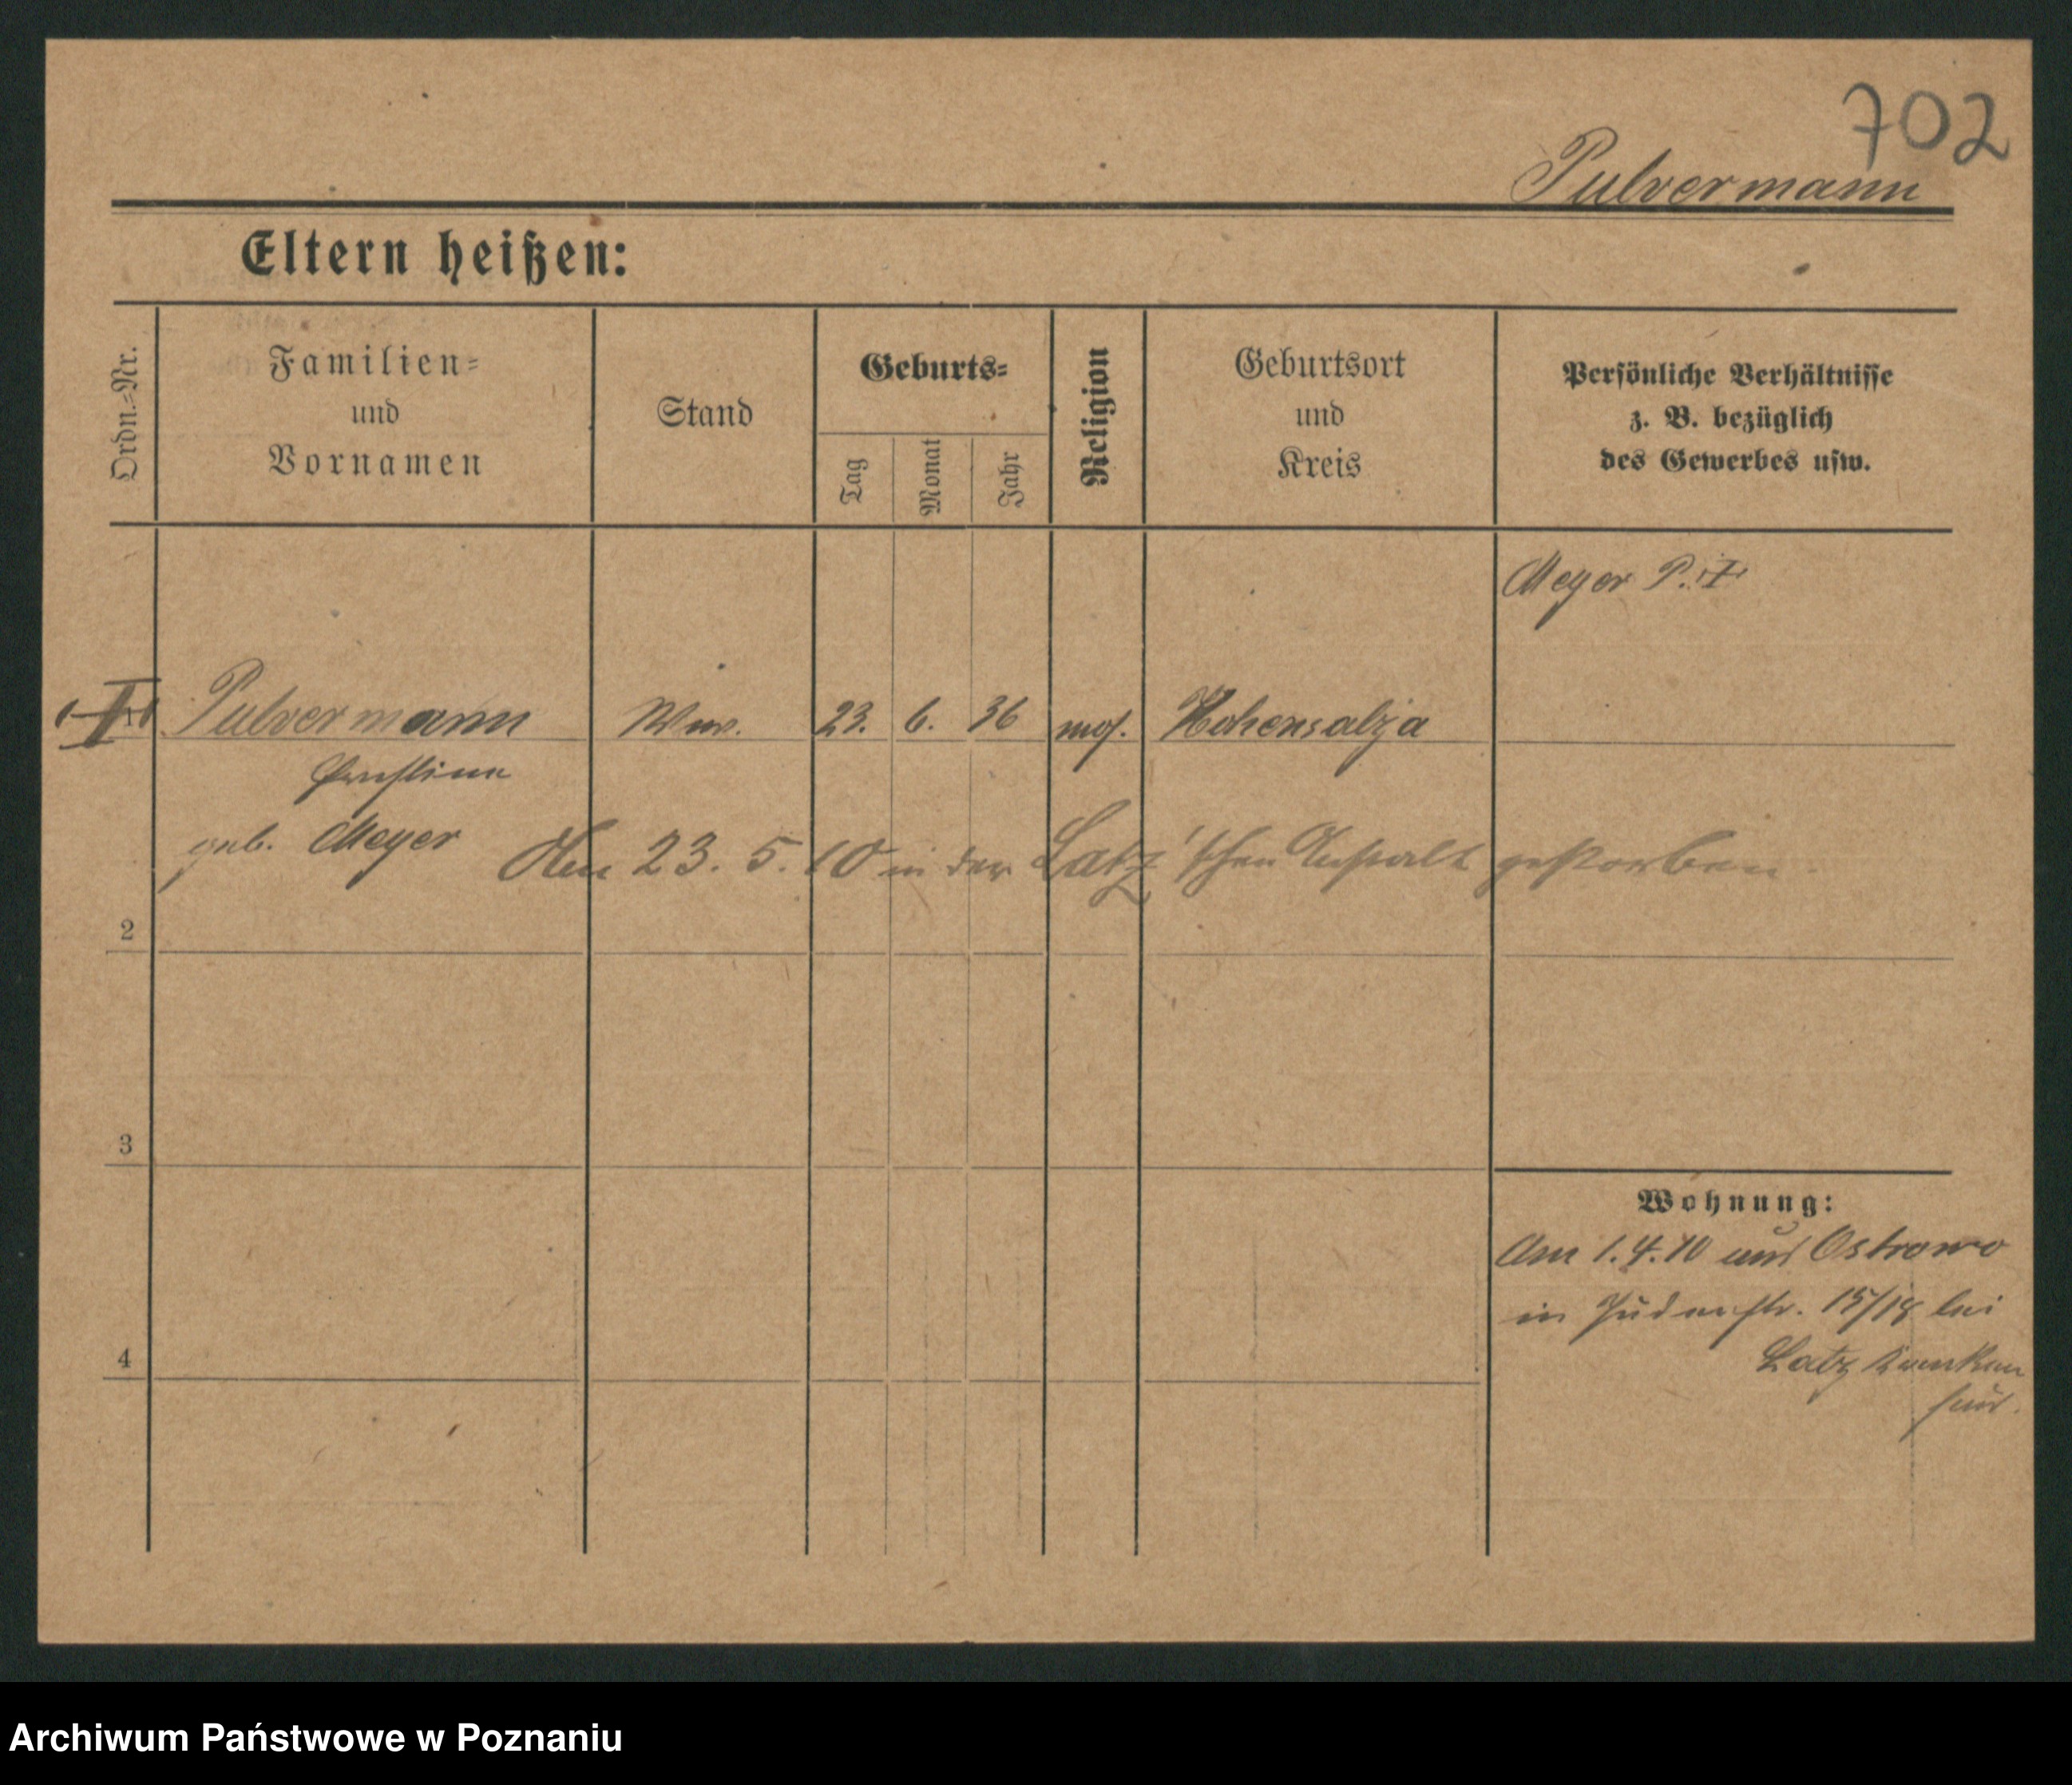 702
Pulvermann
Eltern heißen:
Ordn.-Nr.
Familien-
und
Vornamen
Stand
Geburts-
Tag
Monat
Jahr
Religion
Geburtsort
und
Kreis
Persönliche Verhältnisse
z. B. bezüglich
des Gewerbes usw.
Meyer P.
1 Pulvermann Ww. 23. 6. 36 mos. Hohensalza
Ernstine
geb. Meyer
Am 23. 5. 10 in der Latz'schen Anstalt gestorben.
2
3
Wohnung:
Am 1.4.10 aus Ostrowo
in Judenstr. 15/18 bei
4
Latz Kranken
haus.
Archiwum Państwowe w Poznaniu